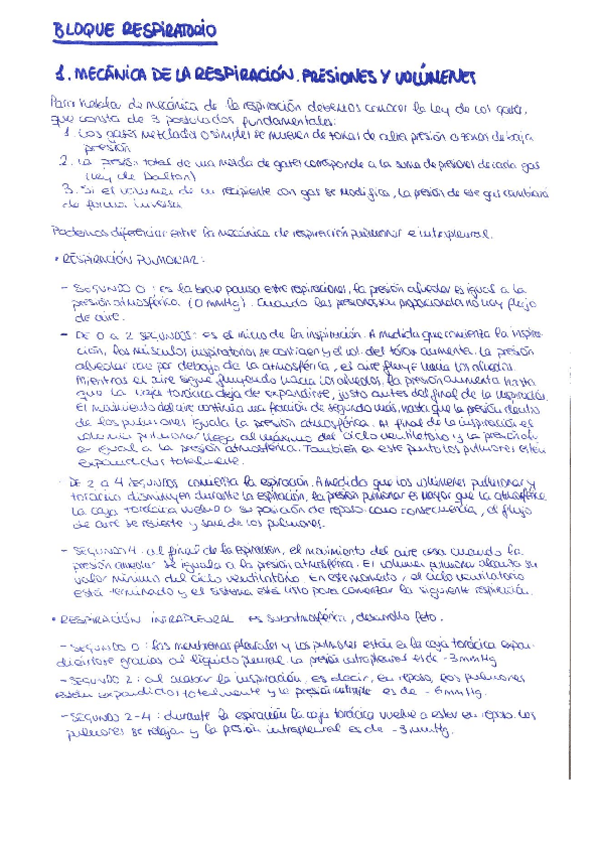 BLOQUE RESPIRATORIO
1. MECÁNICA DE LA RESPIRACIÓN. PRESIONES Y VOLÚMENES
Para hablar de mecánica de la respiración debemos conocer la Ley de los gases,
que consta de 3 postulados fundamentales:
1. Los gases mezclados o simples se mueven de zonas de alta presión a zonas de baja
presión
2. La presión total de una mezcla de gases corresponde a la suma de presiones de cada gas
(Ley de Dalton)
3. Si el volumen de un recipiente con gas se modifica, la presión de ese gas cambiará
de forma inversa.
Podemos diferenciar entre la mecánica de respiración pulmonar e intrapleural.
• RESPIRACIÓN PULMONAR:
- SEGUNDO 0: es la breve pausa entre respiraciones, la presión alveolar es igual a la
presión atmosférica. (0 mmHg). Cuando las presiones son no hay flujo
de aire.
- DE 0 a 2 SEGUNDOS: es el inicio de la inspiración. A medida que comienza la inspira-
ción, los músculos inspiratorios se contraen y el vol. del tórax aumenta. La presión
alveolar cae por debajo de la atmosférica, el aire fluye hacia los alveolos.
Mientras el aire sigue fluyendo hacia los alveolos, la presión aumenta hasta
que la caja torácica deja de expandirse, justo antes del final de la inspiración.
El movimiento del aire continúa una fracción de segundo más, hasta que la presión dentro
de los pulmones iguala la presión atmosférica. Al final de la inspiración el
volumen pulmonar llega al máximo del ciclo ventilatorio y la presión
es igual a la presión atmosférica. También en este punto los pulmones están
expandidos totalmente.
- DE 2 a 4 SEGUNDOS comienza la espiración. A medida que los volúmenes pulmonar y
torácico disminuyen durante la espiración, la presión pulmonar es mayor que la atmosférica
la caja torácica vuelve a su posición de reposo como consecuencia, el flujo
de aire se revierte y sale de los pulmones.
- SEGUNDO 4: al final de la espiración, el movimiento del aire cesa cuando la
presión alveolar se iguala a la presión atmosférica. El volumen pulmonar alcanza su
valor mínimo del ciclo ventilatorio. En este momento, el ciclo ventilatorio
está terminado y el sistema está listo para comenzar la siguiente respiración.
• RESPIRACIÓN INTRAPLEURAL es subatmosférica, desarrollo feto.
- SEGUNDO 0: las membranas pleurales y los pulmones están en la caja torácica expan-
diéndose gracias al líquido pleural. La presión intrapleural es de -3mmHg
- SEGUNDO 2: al acabar la inspiración, es decir, en reposo, los pulmones
están expandidos totalmente y la presión es de -6mmHg.
- SEGUNDO 2-4: durante la espiración la caja torácica vuelve a estar en reposo. Los
pulmones se relajan y la presión intrapleural es de -3mmHg.